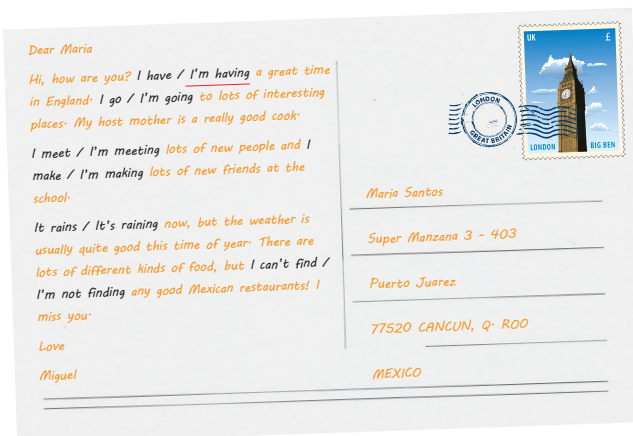 Dear Maria
Hi, how are you? I have / I'm having a great time
in England. I go / I'm going to lots of interesting
places. My host mother is a really good cook.
I meet / I'm meeting lots of new people and I
make / I'm making lots of new friends at the
school.
It rains / It's raining now, but the weather is
usually quite good this time of year. There are
lots of different kinds of food, but I can't find /
I'm not finding any good Mexican restaurants! I
miss you.
Love
Miguel
UK £
LONDON BIG BEN
LONDON
GREAT BRITAIN
Maria Santos
Super Manzana 3 - 403
Puerto Juarez
77520 CANCUN, Q. ROO
MEXICO